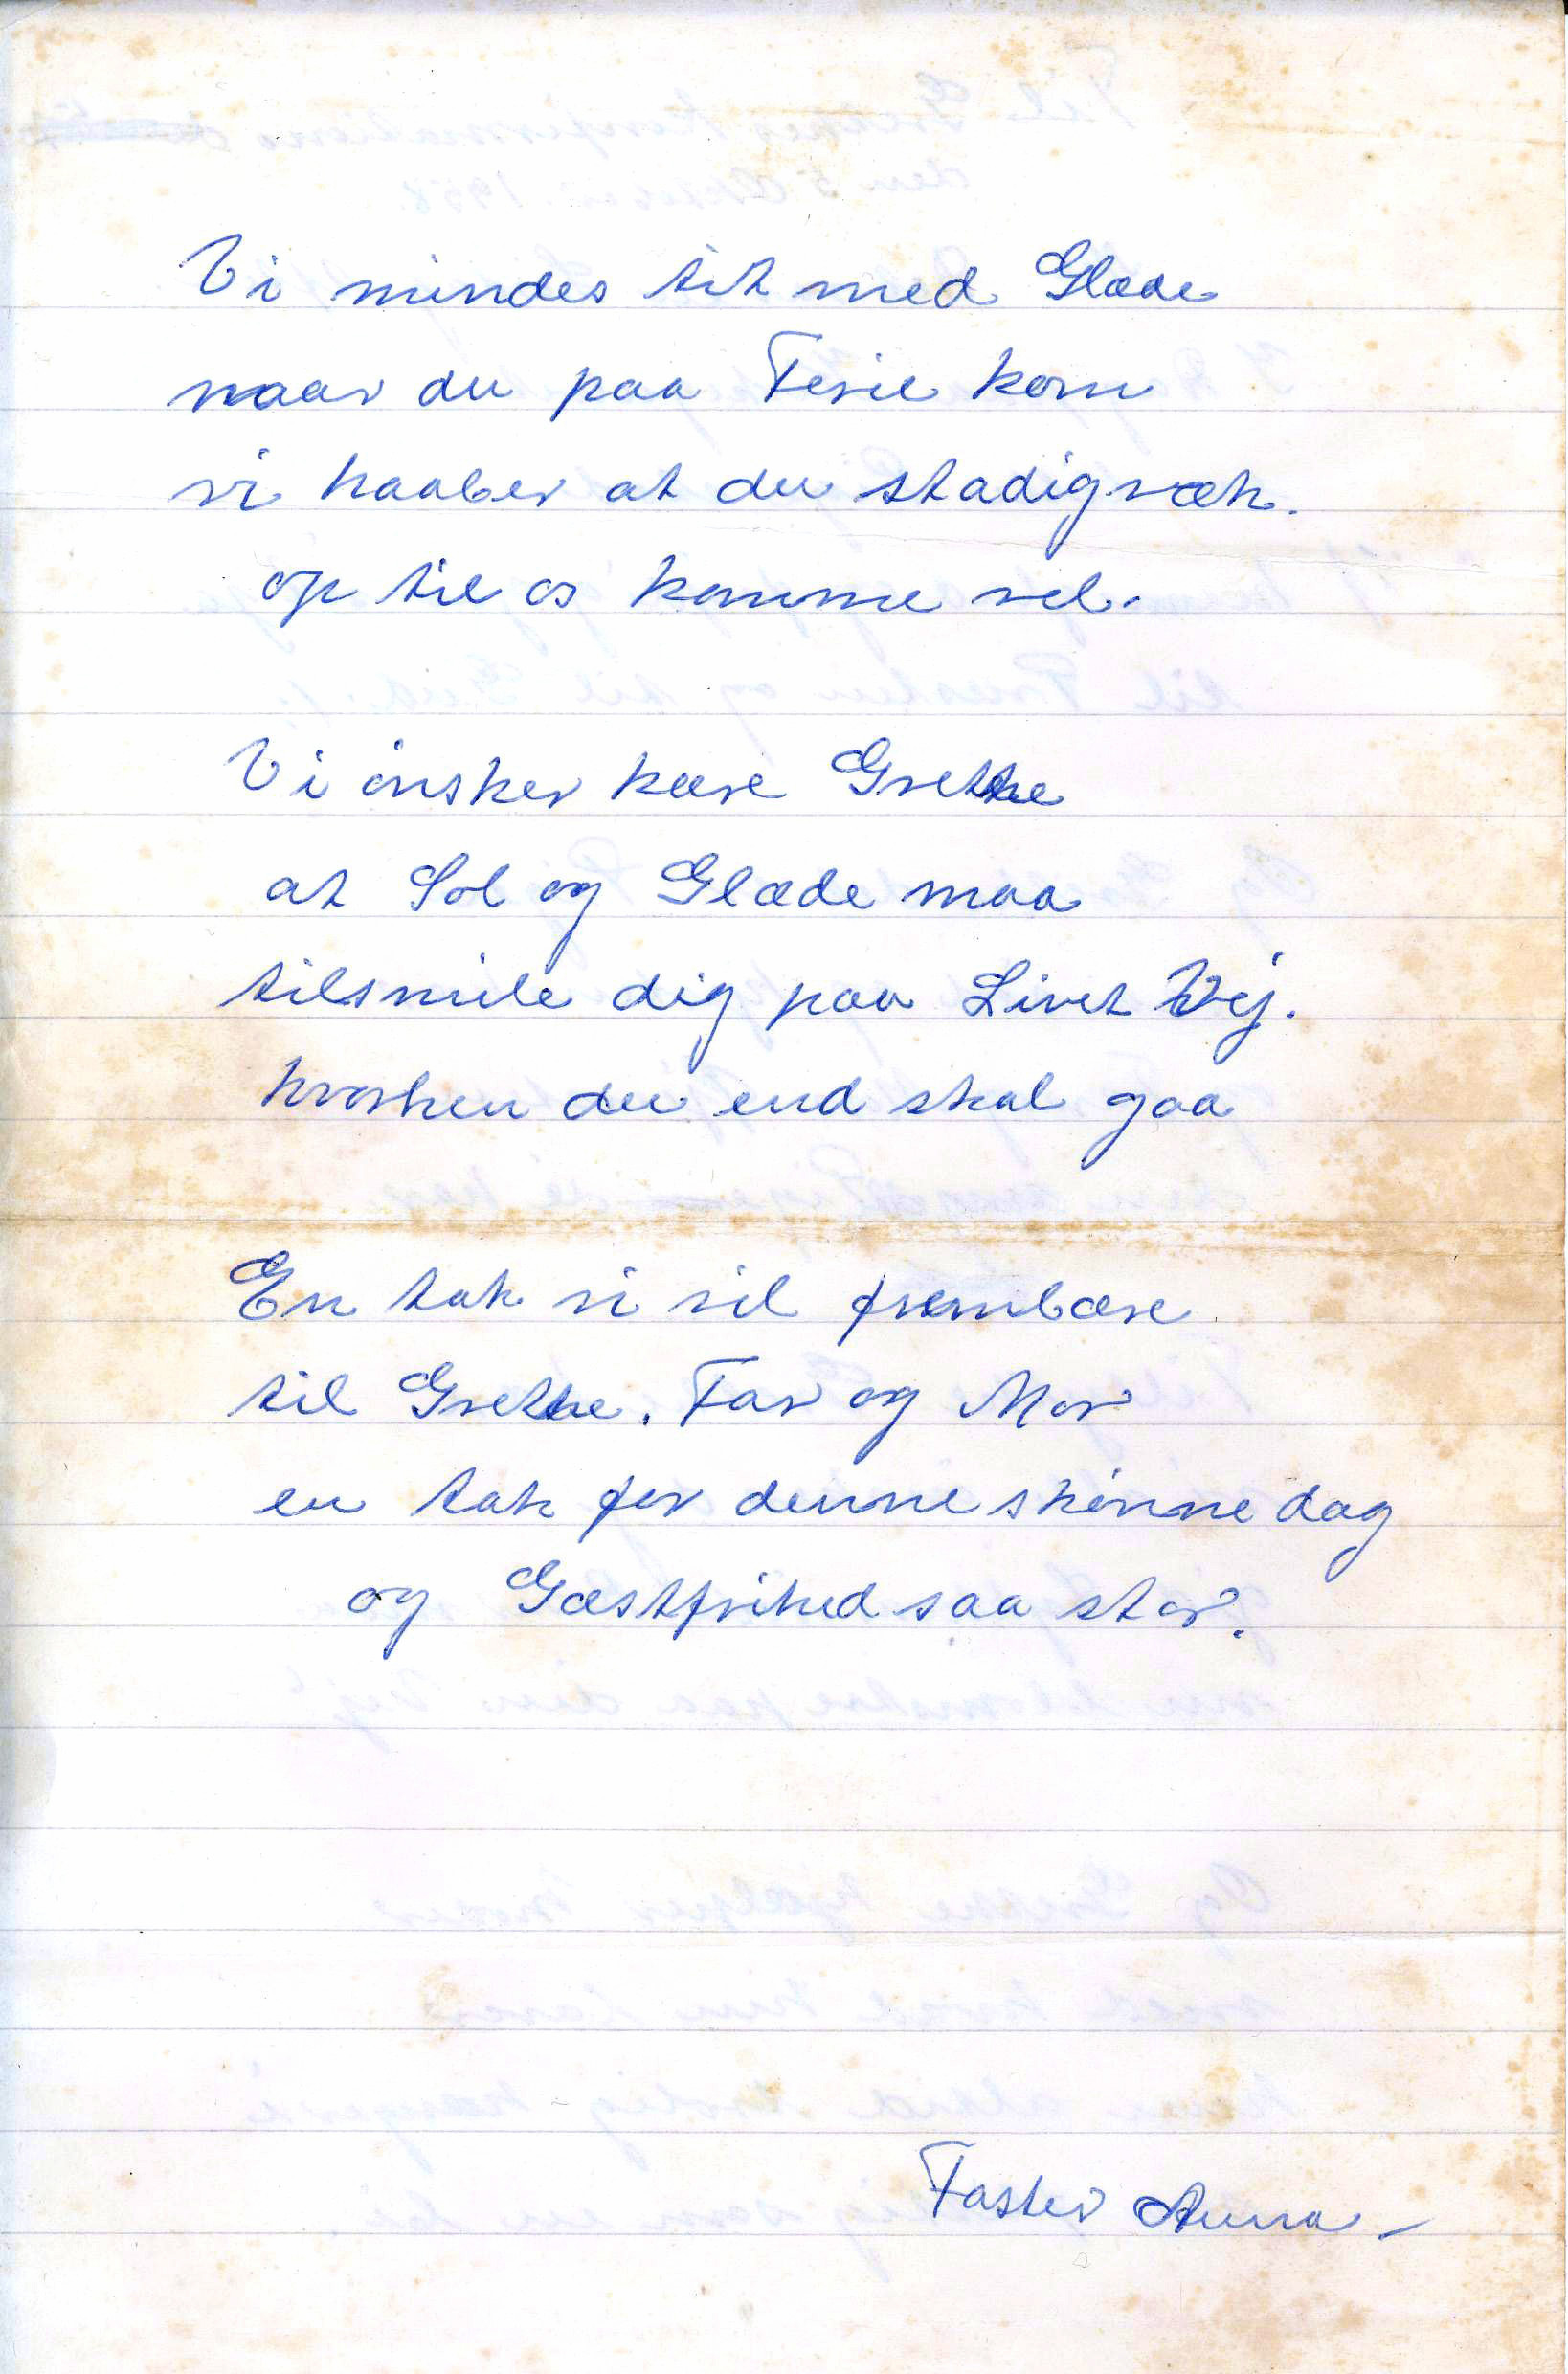 Vi mindes tit med Glæde
naar du paa Ferie kom
vi haaber at du stadigvæk.
op til os komme vel.
Vi ønsker kære Grethe
at Sol og Glæde maa
tilsmile dig paa Livet Vej.
hvorhen du end skal gaa
En tak vi vil frembære
til Grethe. Far og Mor
en tak for denne skønne dag
og Gæstfrihed saa stor.
Faster Anna –